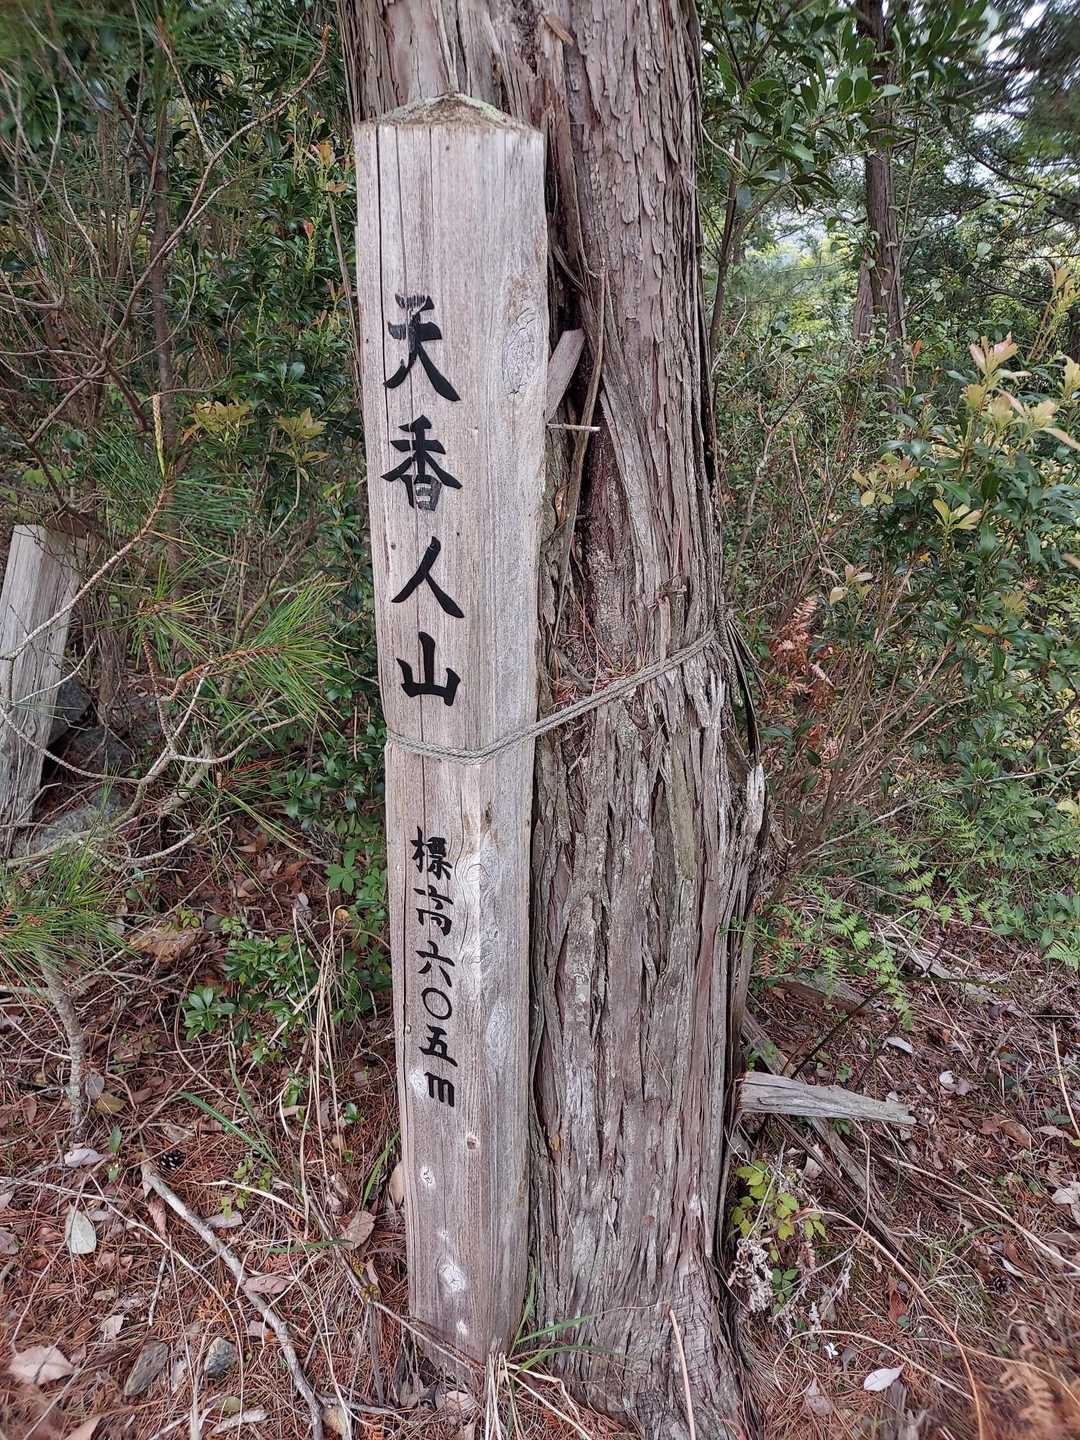 天香人山
標高六〇五m